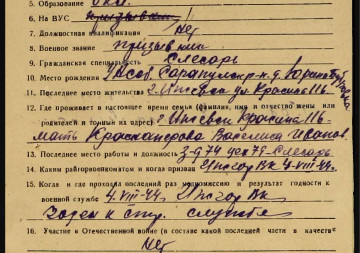 5. Образование 6 кл.
6. На ВУС призывник
7. Должностная квалификация Нет
8. Военное звание призывник
9. Гражданская специальность Слесарь
10. Место рождения УАССР. Сарапульск. р-н д.
11. Последнее место жительства г. Ижевск ул. Красная 116
12. Где проживает в настоящее время семья (фамилия, имя и отчество жены или
родителей и точный их адрес) г. Ижевск Красная 116-
мать Красноперова Василиса Иванов.
13. Последнее место работы и должность З-д 74 цех 79-Слесарь
14. Каким райгорвоенкоматом и когда призван Ижгор ВК 4-VIII-44.
15. Когда и где проходил последний раз медкомиссию и результат годности к
военной службе 4-VIII-44. Ижгор ВК
Годен к стр. службе
16. Участие в Отечественной войне (в составе какой последней части в качестве
Нет